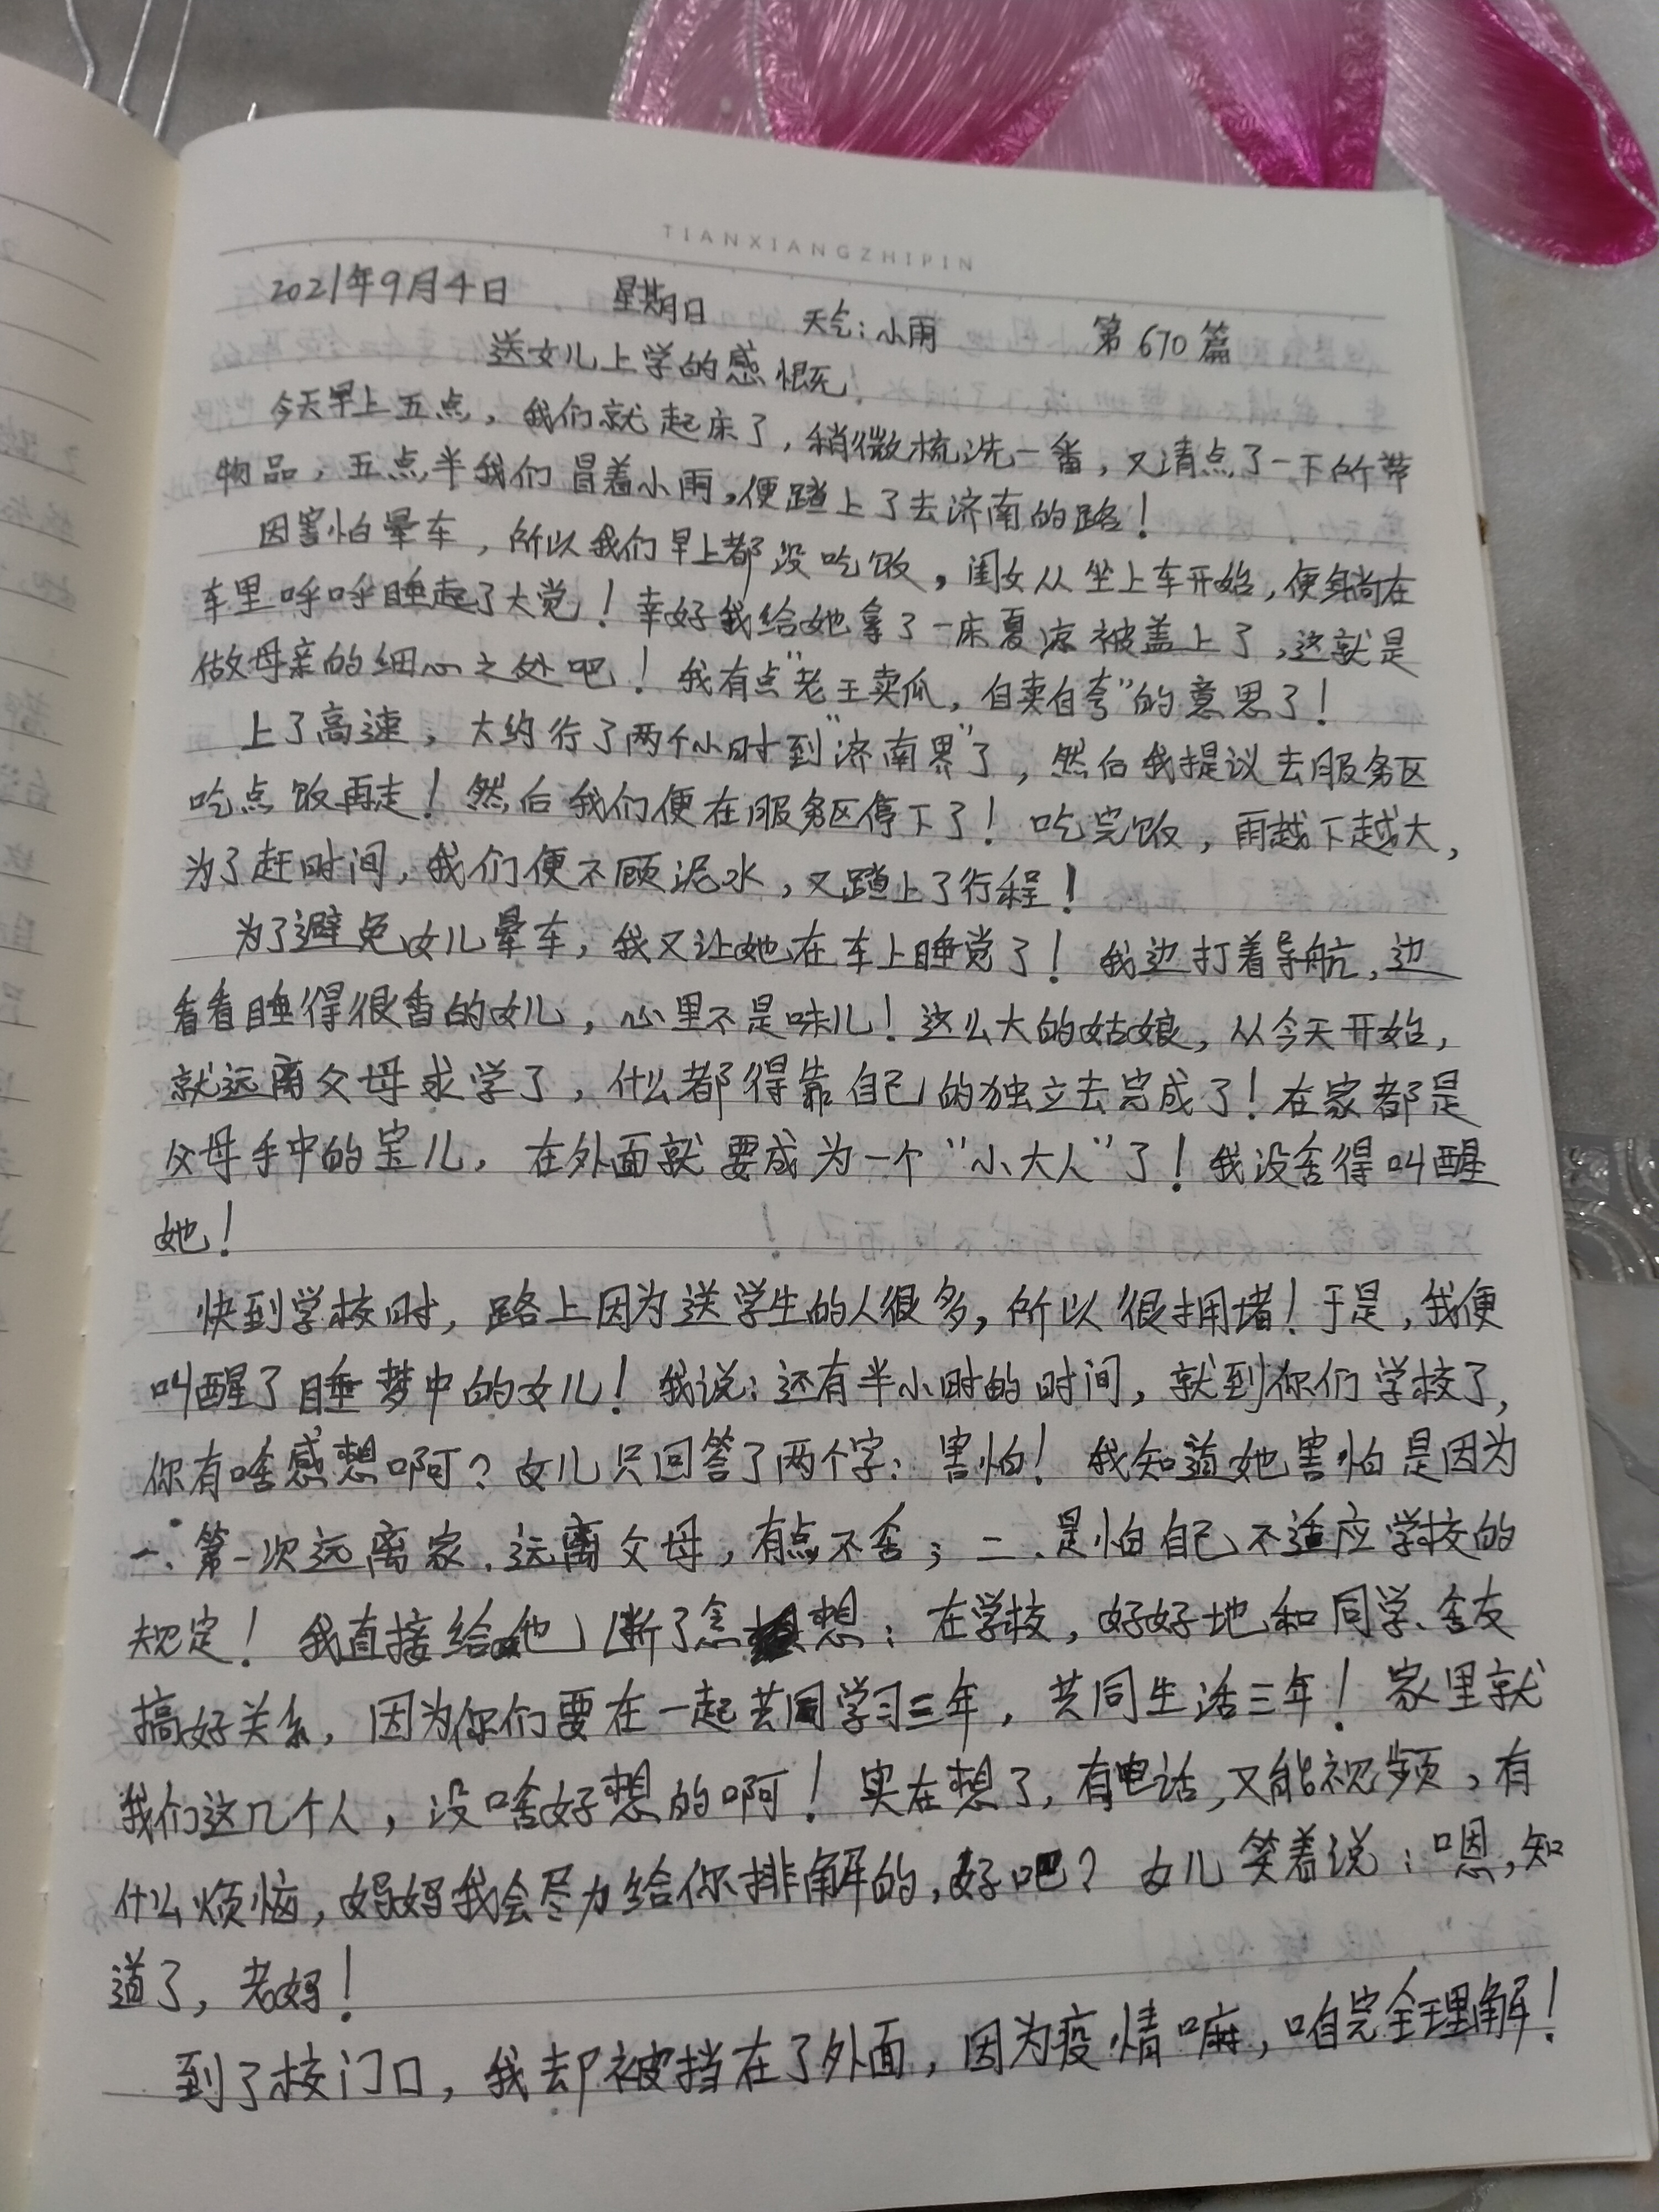 TIANXIANGZHIPIN
2021年9月4日 星期日 天气:小雨 第670篇
送女儿上学的感慨!
今天早上五点,我们就起床了,稍微梳洗一番,又清点了一下所带
物品,五点半我们冒着小雨,便踏上了去济南的路!
因害怕晕车,所以我们早上都没吃饭,闺女从坐上车开始,便躺在
车里呼呼睡起了大觉!幸好我给她拿了一床夏凉被盖上了,这就是
做母亲的细心之处吧!我有点“老王卖瓜,自卖自夸”的意思了!
上了高速,大约行了两个小时到“济南界”了,然后我提议去服务区
吃点饭再走!然后我们便在服务区停下了!吃完饭,雨越下越大,
为了赶时间,我们便不顾泥水,又踏上了行程!
为了避免女儿晕车,我又让她在车上睡觉了!我边打着导航,边
看看睡得很香的女儿,心里不是味儿!这么大的姑娘,从今天开始,
就远离父母求学了,什么都得靠自己的独立去完成了!在家都是
父母手中的宝儿,在外面就要成为一个“小大人”了!我没舍得叫醒
她!
快到学校时,路上因为送学生的人很多,所以很拥堵!于是,我便
叫醒了睡梦中的女儿!我说:还有半小时的时间,就到你们学校了,
你有啥感想啊?女儿只回答了两个字:害怕!我知道她害怕是因为
一、第一次远离家、远离父母,有点不舍;二、是怕自己不适应学校的
规定!我直接给她断了念想:在学校,好好地和同学、舍友
搞好关系,因为你们要在一起共同学习三年,共同生活三年!家里就
我们这几个人,没啥好想的啊!实在想了,有电话,又能视频,有
什么烦恼,妈妈我会尽力给你排解的,好吧?女儿笑着说:嗯,知
道了,老妈!
到了校门口,我却被挡在了外面,因为疫情嘛,咱完全理解!